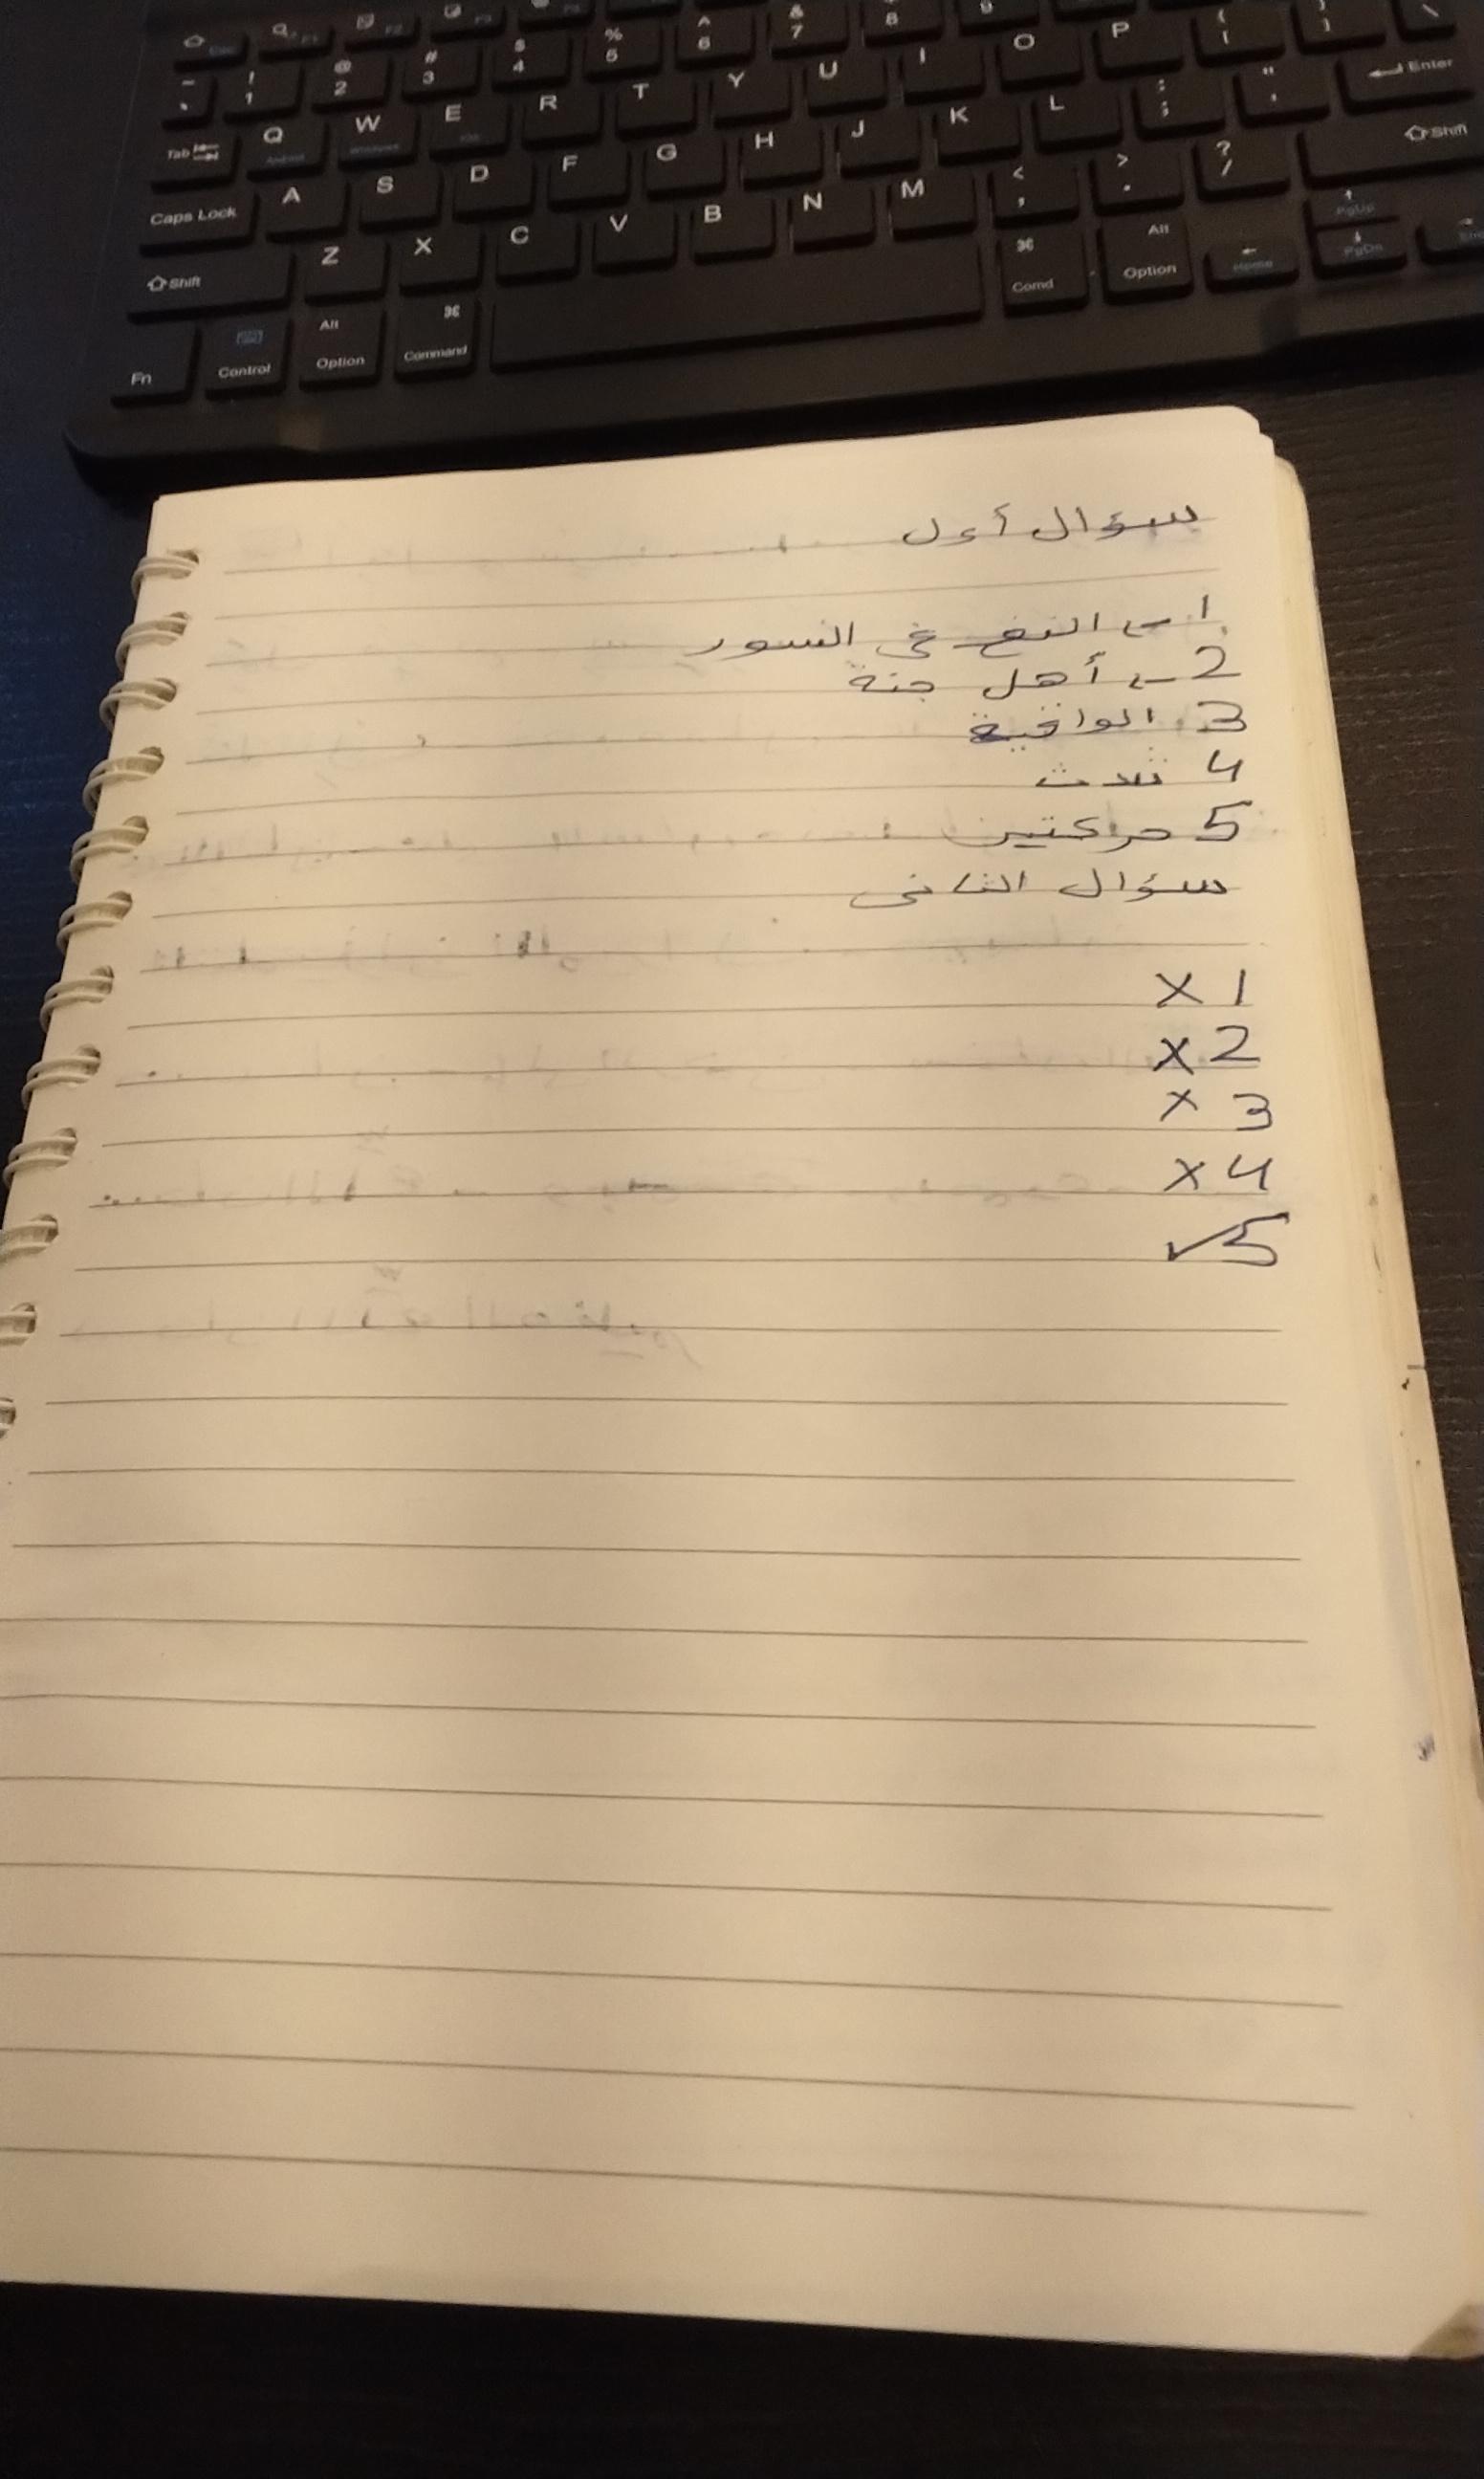 Esc F1 F2
~ ` ! 1 @ 2 # 3 $ 4 % 5 ^ 6 & 7 8 9
Tab Q W E R T Y U I O P { [ } ] \
Caps Lock A S D F G H J K L : ; " ' Enter
Shift Z X C V B N M < , > . ? / Shift
Fn Control Alt Option ⌘ Command ⌘ Comd Alt Option Home PgUp PgDn
سؤال أول
1 ـ النفخ في السور
2 ـ أهل جنة
3 الواقية
4 ثلاث
5 حركتين
سؤال الثانى
1 X
2 X
3 X
4 X
5 ✓